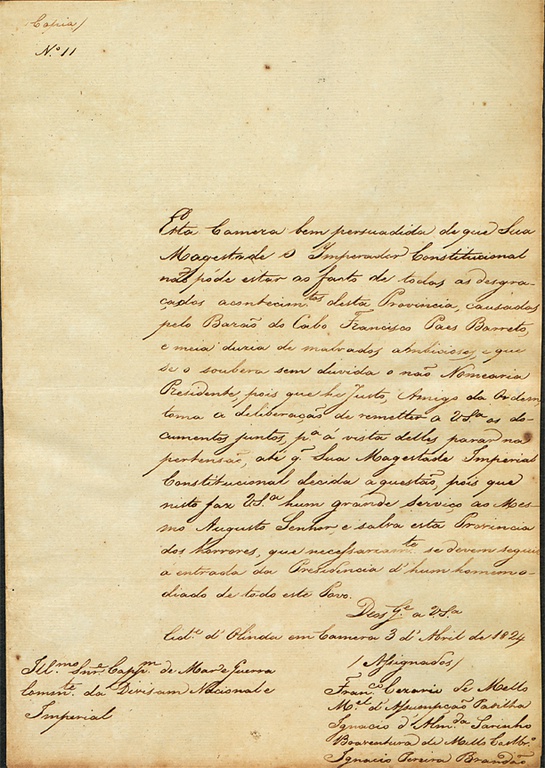 Copia /
N.º 11
Esta Camera bem persuadida de que Sua
Magestade O Imperador Constitucional
naõ póde estar ao facto de todas as desgra-
çadas acontecim.tos desta Provincia, causadas
pelo Baraõ do Cabo, Francisco Paes Barreto,
e meia duzia de malvados ambiciosos, e que
se o soubera sem duvida o naõ Nomearia
Presidente, pois que he Justo, Amigo da Ordem,
toma a deliberaçaõ de remetter a VS.ª os do-
cumentos juntos, p.ª á vista delles parar na
pertensaõ, até q̃ Sua Magestade Imperial
Constitucional decida a questaõ, pois que
nisto faz VS.ª hum grande serviço ao Mes-
mo Augusto Senhor, e salva esta Provincia
dos horrores, que necessariam.te se devem seguir
á entrada da Presidencia d'hum homem o-
diado de todo este Povo.
Deos G.e a VS.ª
Cid.e d'Olinda em Camera 3 d'Abril de 1824
Ill.mo Snr. Cap.m de Mar e Guerra
Comm.te da Divisam Nacional e
Imperial
/ Assignados /
Fran.co Cezario de Mello
M.el d'Assumpçaõ
Ignacio d'Alm.da Sarinho
Boaventura de Mello Castbr.º
Ignacio Pereira Brandaõ